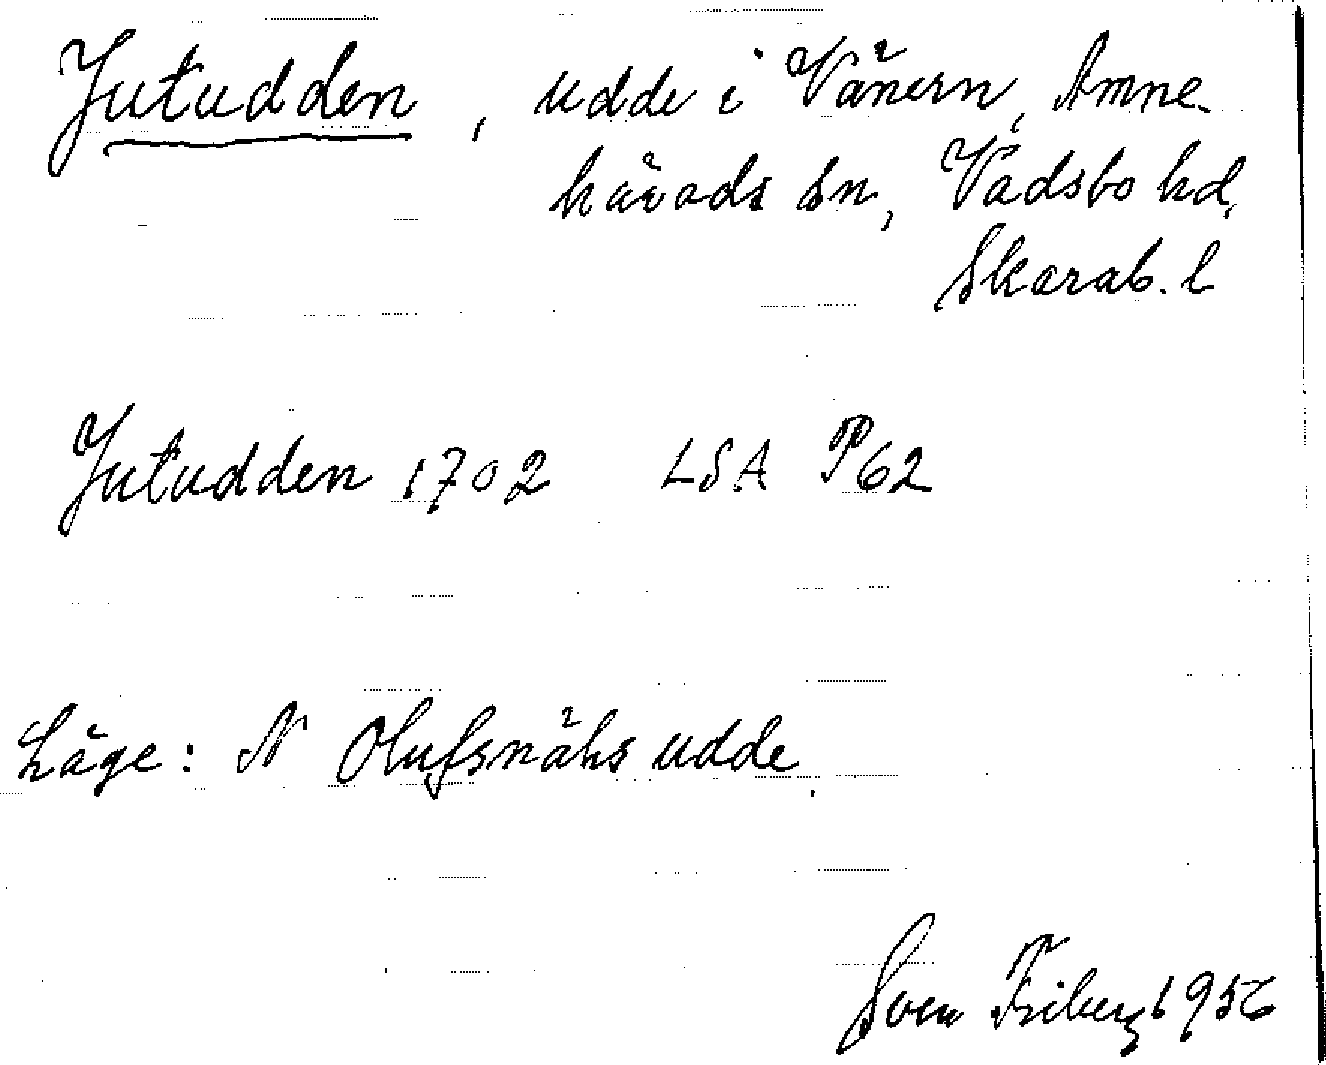 Jutudden, udde i Vänern, Amne-
härads sn, Vadsbo hd,
Skarab. l
Jutudden 1702 LSA P62
Läge: N Olufsnähs udde.
Sven Friberg 1956